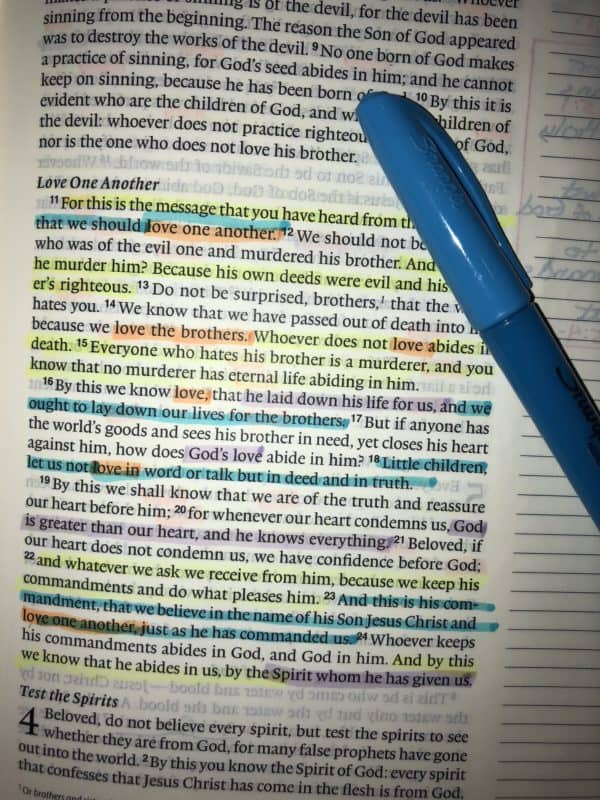 is of the devil, for the devil has been
sinning from the beginning. The reason the Son of God appeared
was to destroy the works of the devil. 9 No one born of God makes
a practice of sinning, for God's seed abides in him; and he cannot
keep on sinning, because he has been born 10 By this it is
evident who are the children of God, and children of
the devil: whoever does not practice of God,
nor is the one who does not love his brother.
Love One Another
11 For this is the message that you have heard from
that we should love one another. 12 We should not
who was of the evil one and murdered his brother. And
he murder him? Because his own deeds were evil and his
er's righteous. 13 Do not be surprised, brothers, that the
hates you. 14 We know that we have passed out of death into
because we love the brothers. Whoever does not love abides
death. 15 Everyone who hates his brother is a murderer, and you
know that no murderer has eternal life abiding in him.
16 By this we know love, that he laid down his life for us, and we
ought to lay down our lives for the brothers. 17 But if anyone has
the world's goods and sees his brother in need, yet closes his heart
against him, how does God's love abide in him? 18 Little children,
let us not love in word or talk but in deed and in truth.
19 By this we shall know that we are of the truth and reassure
our heart before him; 20 for whenever our heart condemns us, God
is greater than our heart, and he knows everything. 21 Beloved, if
our heart does not condemn us, we have confidence before God;
22 and whatever we ask we receive from him, because we keep his
commandments and do what pleases him. 23 And this is his com-
mandment, that we believe in the name of his Son Jesus Christ and
love one another, just as he has commanded us. 24 Whoever keeps
his commandments abides in God, and God in him. And by this
we know that he abides in us, by the Spirit whom he has given us.
Test the Spirits
4 Beloved, do not believe every spirit, but test the spirits to see
whether they are from God, for many false prophets have gone
out into the world. 2 By this you know the Spirit of God: every spirit
that confesses that Jesus Christ has come in the flesh is from God,
Sharpie